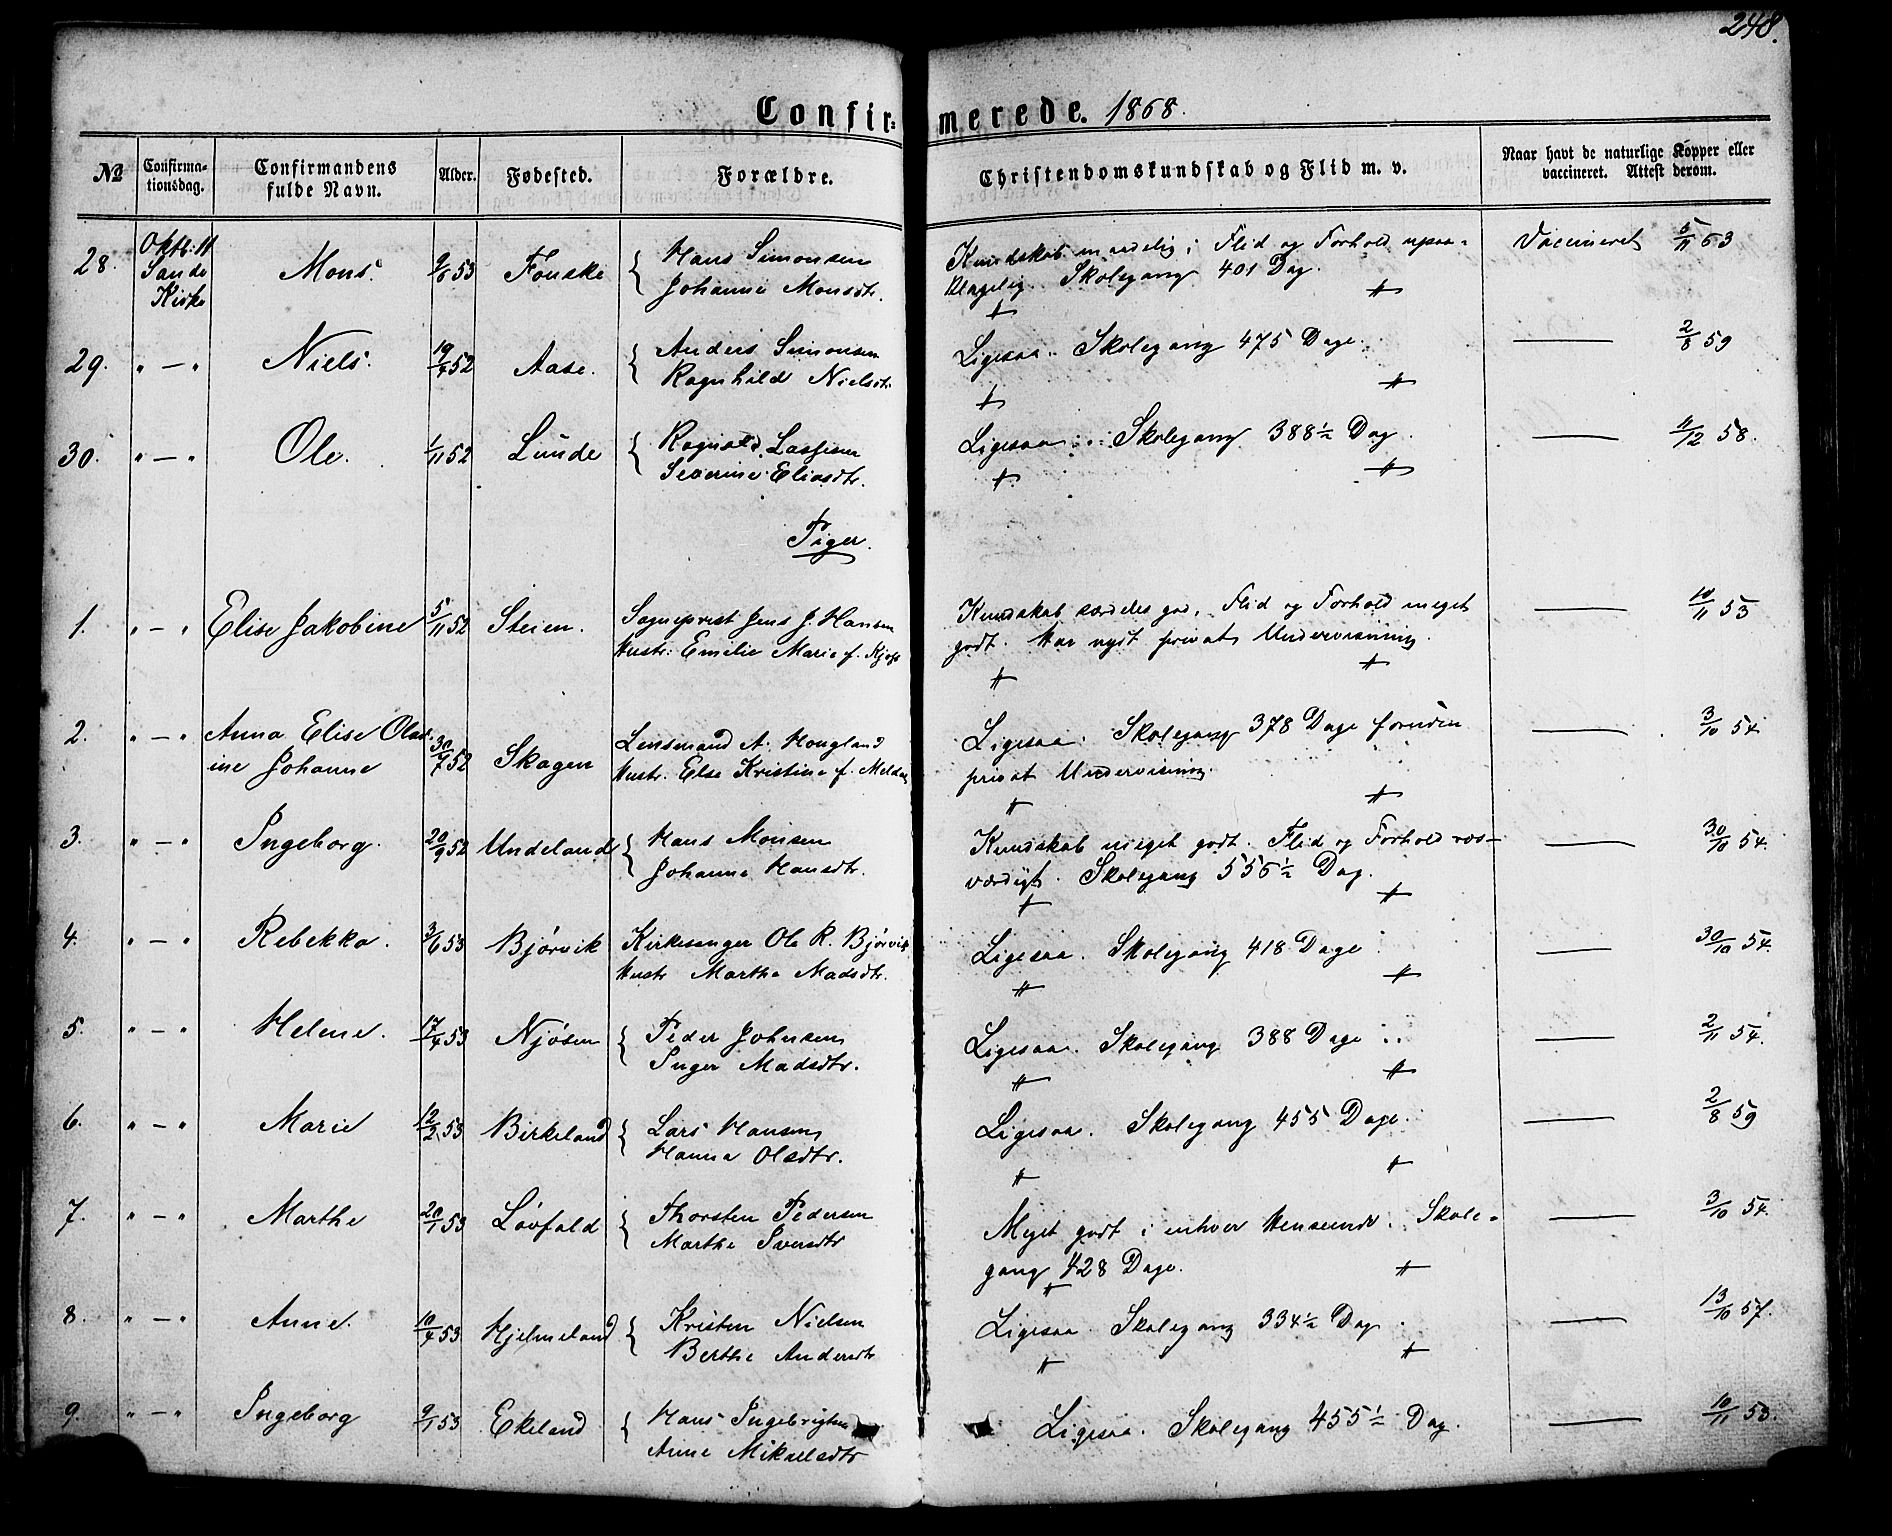 248.
Confir= merede. 1868.
№ Confirma- Confirmandens Alder. Fødested. Forældre. Christendomskundskab og Flid m. v. Naar havt de naturlige Kopper eller
tionsdag. fulde Navn. vaccineret. Attest derom.
28. Oktb: 11 Mons. 9/6 53 Fonske { Hans Simonsen Kundskab maadelig; Flid og Forhold upaa- Vaccineret 5/11 63
Sande Johanne Monsdtr. klagelig. Skolegang 401 Dag.
Kirke
29. " — " Niels. 19/4 52 Aase. { Anders Simonsen Ligesaa. Skolegang 475 Dage. — 2/8 59
Ragnhild Nielsdtr.
30. " — " Ole. 1/11 52 Lunde { Ragnald Lassesen Ligesaa. Skolegang 388½ Dag. — 11/12 58.
Severine Eliasdtr.
Piger.
1. " — " Elise Jakobine 5/11 52 Steien. Sogneprest Jens J. Hansen Kundskab særdeles god, Flid og Forhold meget — 10/11 53
Hustr: Emelie Marie f. godt. Har nydt privat Undervisning.
2. " — " Anna Elise Olav- 30/7 52 Skagen Lensmand A. Hougland Ligesaa. Skolegang 378 Dage foruden — 3/10 54.
ine Johanne Hustr. Else Kristine f. privat Undervisning.
3. " — " Ingeborg. 20/9 52 Undeland { Hans Monsen Kundskab meget godt. Flid og Forhold ros- — 30/10 54.
Johanne Hansdtr. værdigt. Skolegang 556½ Dag.
4. " — " Rebekka. 3/6 53 Bjørvik Kirkesanger Ole R. Bjørvik Ligesaa. Skolegang 418 Dage — 30/10 54.
Hustr Marthe Madsdtr.
5. " — " Helene. 17/4 53 Njøsen { Peder Johnsen Ligesaa. Skolegang 388 Dage — 2/11 54.
Inger Madsdtr.
6. " — " Marie 12/2 53 Birkeland { Lars Hansen Ligesaa. Skolegang 455 Dage. — 2/8 59
Hanna Olsdtr.
7. " — " Marthe 20/1 53 Løvfald { Thorsten Pedersen Meget godt i enhver Henseende. Skole- — 3/10 54.
Marthe Iversdtr gang 428 Dage.
8. " — " Anne. 10/4 53 Hjelmeland { Kristen Nielsen Ligesaa. Skolegang 334½ Dag — 13/10 57.
Berthe Andersdtr
9. " — " Ingeborg 9/1 53 Ekeland { Hans Ingebrigtsen Ligesaa. Skolegang 455½ Dag. — 10/11 53.
Anne Mikkelsdtr